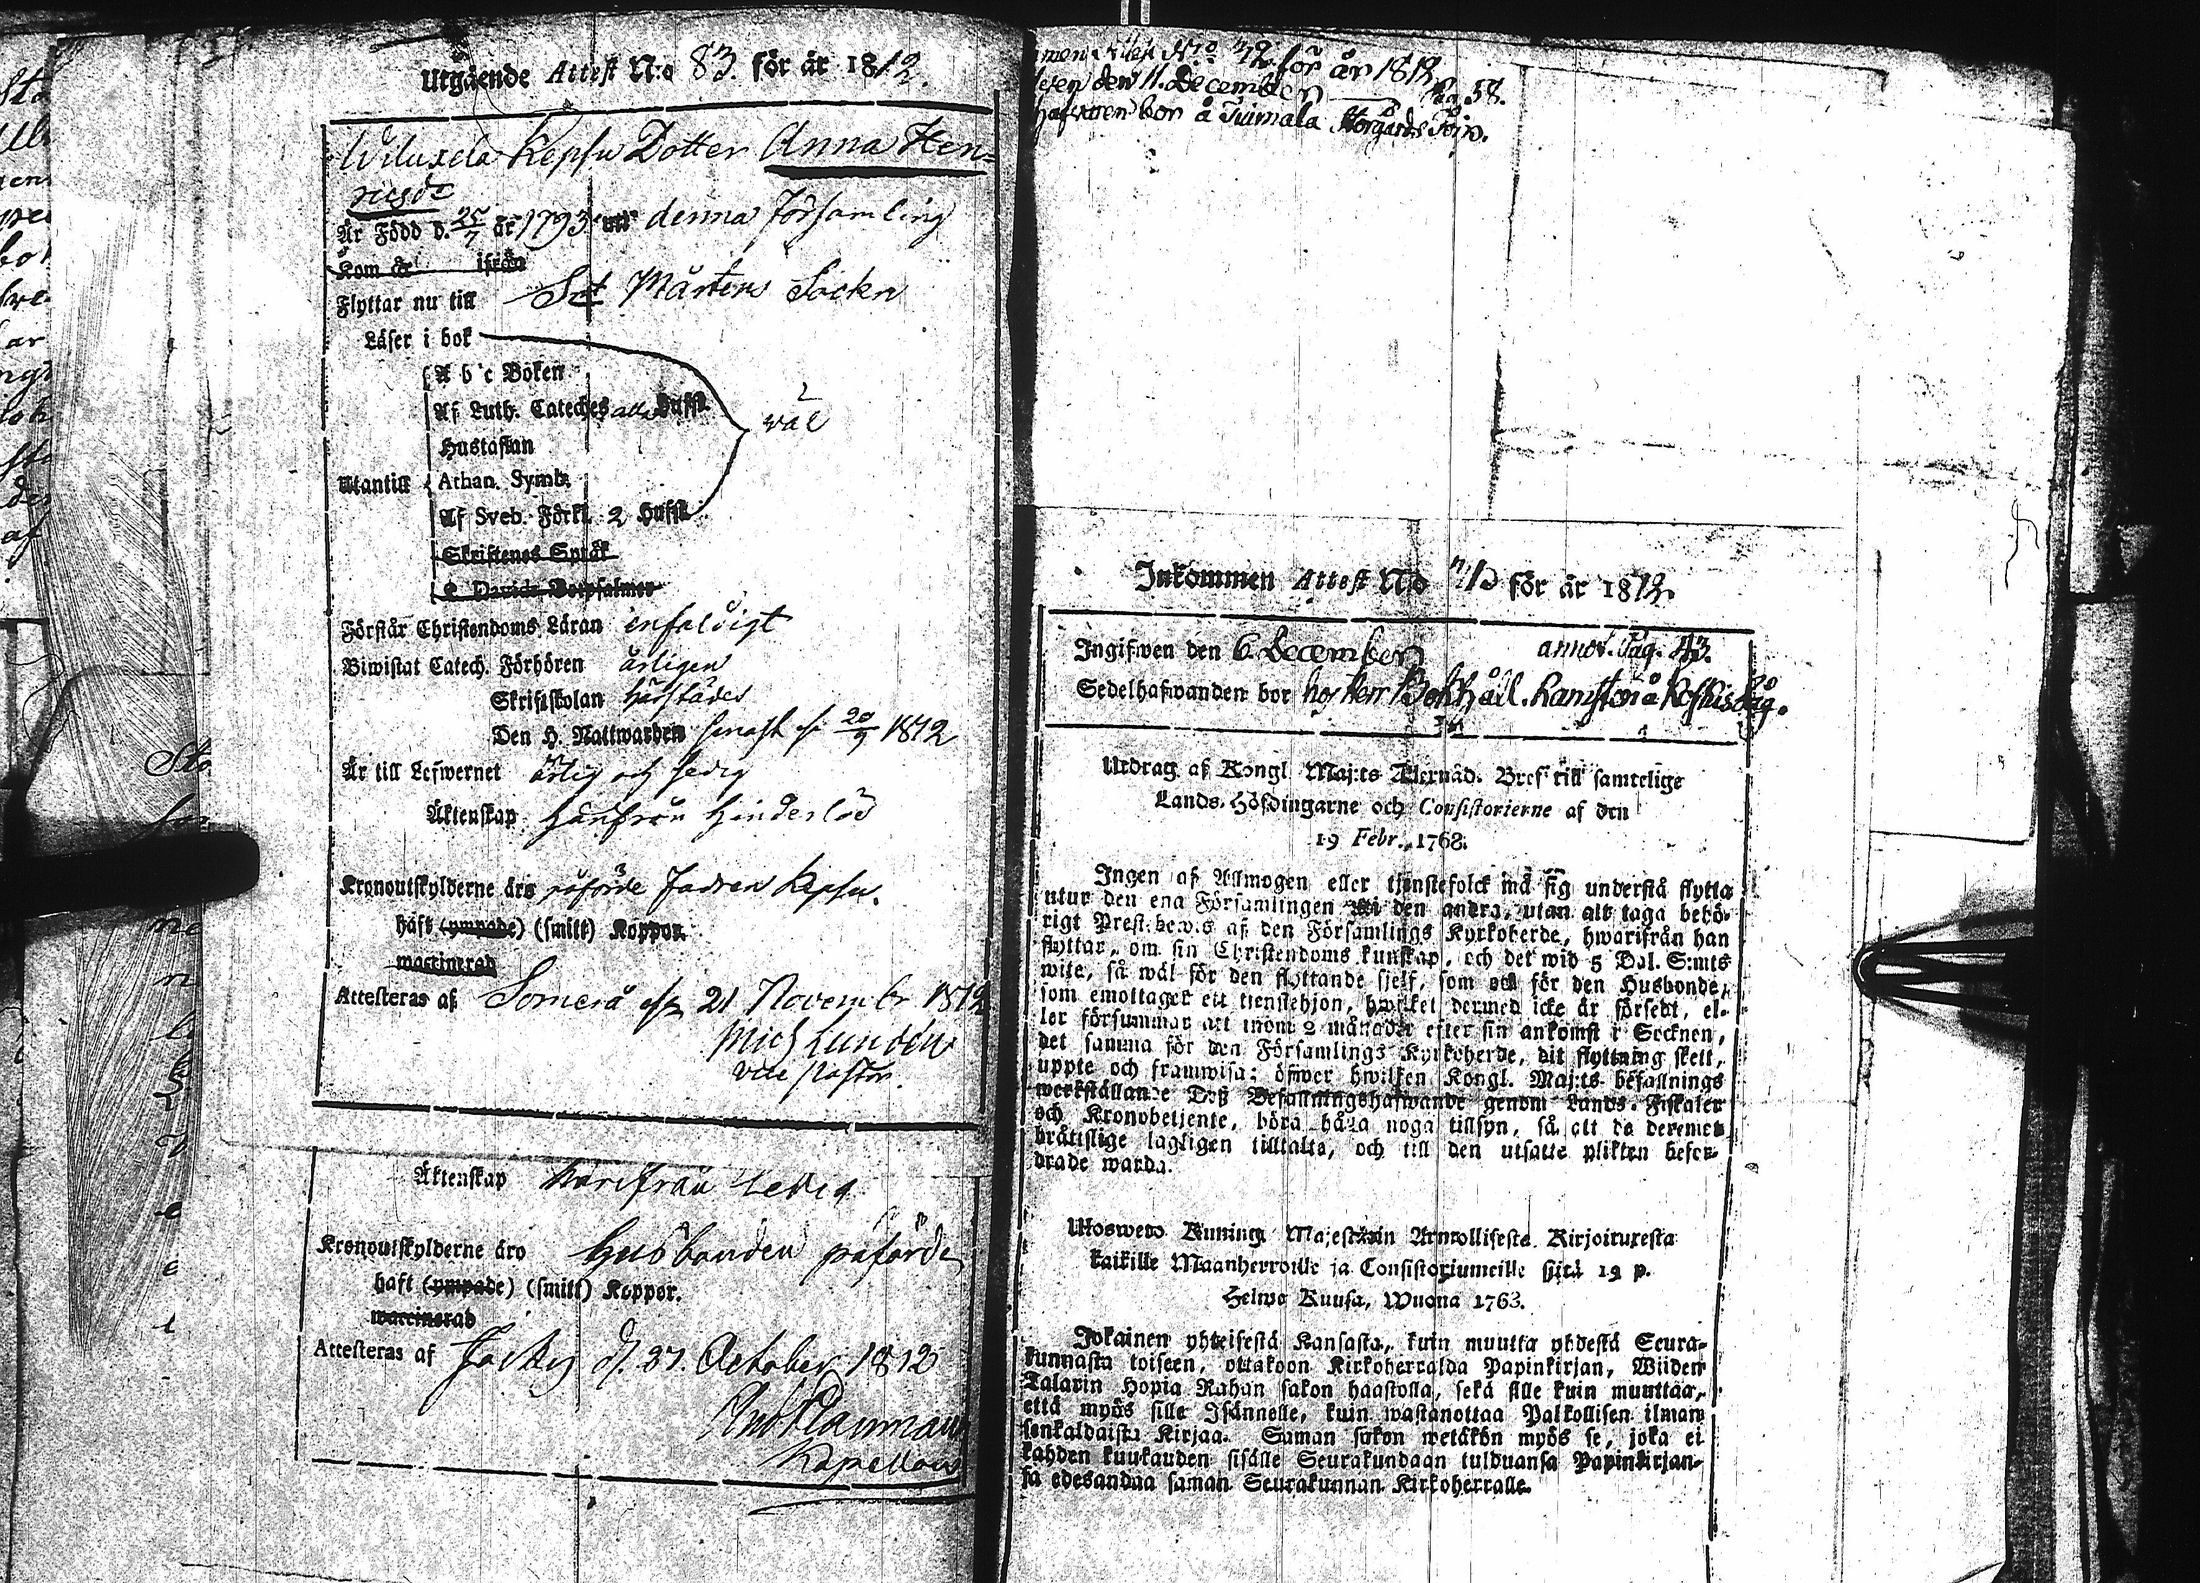 Utgående Attest N:o 83. för år 1812.
Wiluxela Kepsu Dotter Anna Hen=
ricsdr
Är Född d. 25/7 år 1793 uti denna Församling
Kom år ifrån
Flyttar nu till Sct Mårtens Sockn
Läser i bok
A b c Boken
Af Luth. Cateches alla Hufst. wäl
Hustaflan
Utantill Athan. Symb.
Af Sveb. Förkl. 2 Hufst.
Skriftenes Språk
D. Davids Botpsalmer
Förstår Christendoms Läran enfaldigt
Biwistat Catech. Förhören årligen
Skriftskolan härstädes
Den H. Nattwarden senast d. 20/9 1812
Är till Lefwernet ärlig och sedig
Äktenskap härifrån hinderlös
Kronoutskylderne äro påförde Fadren Kepsu.
haft (ympade) (smitt) Koppor.
waccinerad
Attesteras af Somero d. 21 Novembr 1812
Mich Lundén
vice pastor.
Äktenskap härifrån Ledig
Kronoutskylderne äro husbonden påförde
haft (ympade) (smitt) Koppor.
waccinerad
Attesteras af d. 27. October 1812
Kapellan
men Attest N:o 72 för år 1812
wen den 11. December Pag. 58.
hafwaren bor å Tuimala Storgårds Torp.
Inkommen Attest No 71 för år 1812.
Ingifwen den 6 December annot. Pag. 43.
Sedelhafwanden bor hos Herr Bokhåll. å Koskis
Utdrag af Kongl. Maj:ts Allernåd. Bref till samtelige
Lands-Höfdingarne och Consistorierne af den
19 Febr. 1763.
Ingen af Allmogen eller tjenstefolck må sig understå flytta
utur den ena Församlingen till den andra, utan att taga behö-
rigt Prest-bewis af den Församlings Kyrkoherde, hwarifrån han
flyttar, om sin Christendoms kunskap, och det wid 5 Dal. S:mts
wite, så wäl för den flyttande sjelf, som ock för den Husbonde,
som emottager ett tjenstehjon, hwilket dermed icke är försedt, el-
ler försummar att inom 2 månader efter sin ankomst i Socknen,
det samma för den Församlings Kyrkoherde, dit flyttning skett,
uppte och framwisa: öfwer hwilken Kongl. Maj:ts befallnings
werkställande Deß Befallningshafwande genom Lands-Fiskaler
och Kronobetjente, böra hafwa noga tillsyn, så att de deremot
bråttslige lagligen tilltalte, och till den utsatte plikten befor-
drade warda.
Ulosweto Kuninga. Majestätin Armollisesta Kirjoituxesta
kaikille Maanherroille ja Consistoriumeille siitä 19 p.
Helmo Kuusa, Wuona 1763.
Jokainen yhteisestä Kansasta, kuin muutta yhdestä Seura-
kunnasta toiseen, ottakoon Kirkoherralda Papinkirjan, Wiiden
Talarin Hopia Rahan sakon haastolla, sekä sille kuin muuttaa,
että myös sille Isännelle, kuin wastanottaa Palkollisen ilman
senkaldaista Kirjaa. Saman sakon wetäkön myös se, joka ei
kahden kuukauden sisälle Seurakundaan tulduansa Papinkirjan-
sa edesandaa saman Seurakunnan Kirkoherralle.